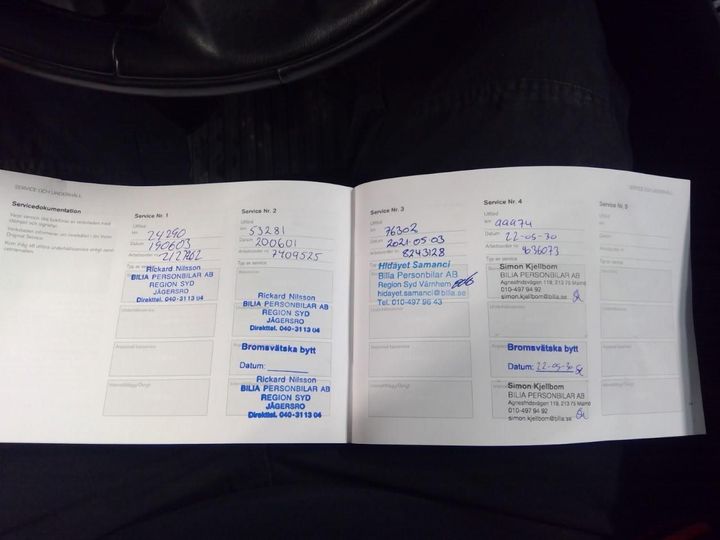 SERVICE OCH UNDERHÅLL
Servicedokumentation
Service Nr. 1
Utförd
km 24290
Datum 190603
Arbetsorder nr 2127462
Typ av service
Rickard Nilsson
BILIA PERSONBILAR AB
REGION SYD
JÄGERSRO
Direkttel. 040-31 13 04
Service Nr. 2
Utförd
km 53281
Datum 200601
Arbetsorder nr 7409525
Typ av service
Rickard Nilsson
BILIA PERSONBILAR AB
REGION SYD
JÄGERSRO
Direkttel. 040-31 13 04
Bromsvätska bytt
Datum:
Rickard Nilsson
BILIA PERSONBILAR AB
REGION SYD
JÄGERSRO
Direkttel. 040-31 13 04
SERVICE OCH UNDERHÅLL
Service Nr. 3
Utförd
km 76302
Datum 2021-05-03
Arbetsorder nr 8243128
Hidayet Samanci
Bilia Personbilar AB
Region Syd Värnhem
hidayet.samanci@bilia.se
Tel. 010-497 96 43
Service Nr. 4
Utförd
km 99974
Datum 22-05-30
Arbetsorder nr 9636073
Simon Kjellbom
BILIA PERSONBILAR AB
Agnesfridsvägen 119, 213 75 Malmö
010-497 94 92
simon.kjellbom@bilia.se
Bromsvätska bytt
Datum: 22-05-30
Simon Kjellbom
BILIA PERSONBILAR AB
Agnesfridsvägen 119, 213 75 Malmö
010-497 94 92
simon.kjellbom@bilia.se
Service Nr. 5
Utförd
km
Datum
Arbetsorder nr
Typ av service